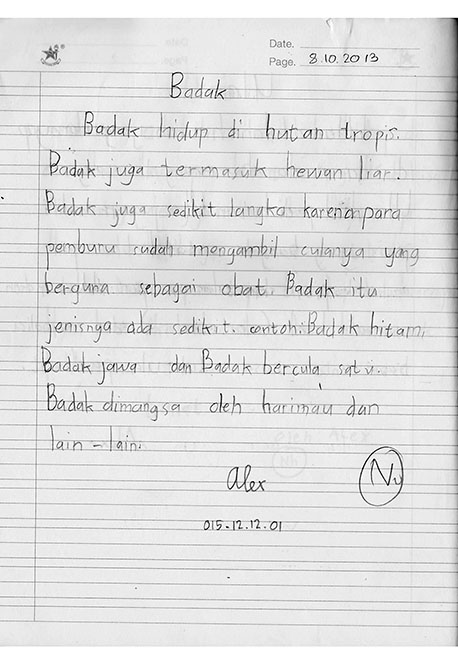 Date.
Page. 8.10.2013
Badak
Badak hidup di hutan tropis.
Badak juga termasuk hewan liar.
Badak juga sedikit langka karena para
pemburu sudah mengambil culanya yang
berguna sebagai obat. Badak itu
jenisnya ada sedikit. contoh: Badak hitam,
Badak jawa dan Badak bercula satu.
Badak dimangsa oleh harimau dan
lain-lain.
Alex
015-12.12.01